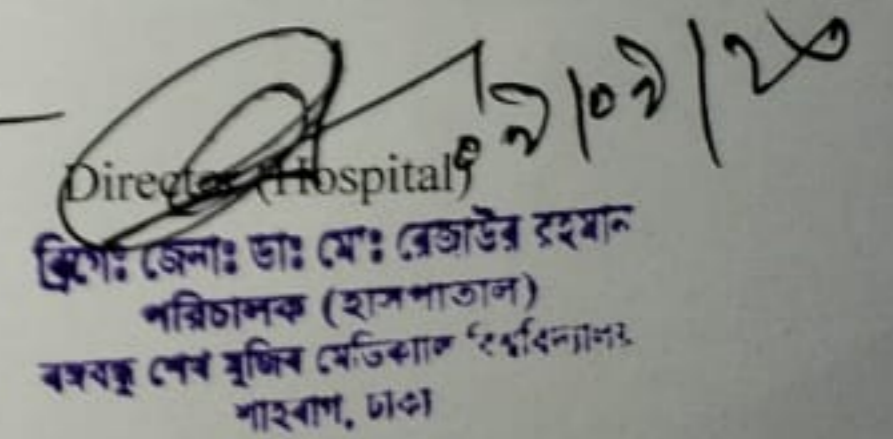 Director (Hospital)
ব্রিগেঃ জেনাঃ ডাঃ মোঃ রেজাউর রহমান
পরিচালক (হাসপাতাল)
বঙ্গবন্ধু শেখ মুজিব মেডিক্যাল বিশ্ববিদ্যালয়
শাহবাগ, ঢাকা